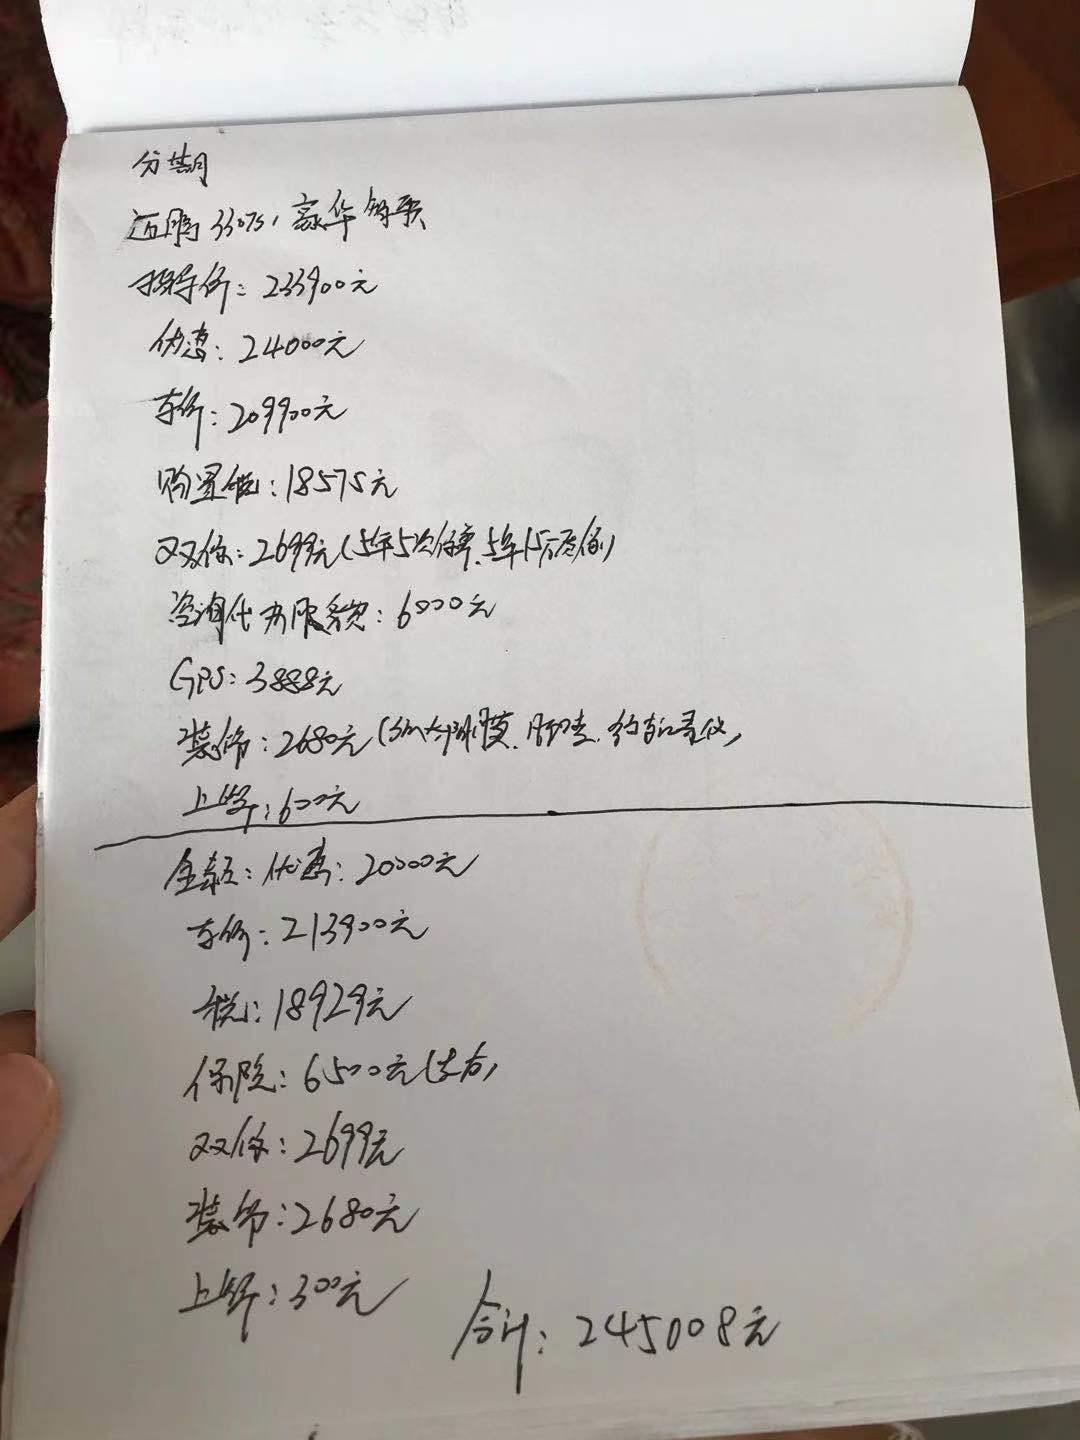 分期
迈腾 330TSI 豪华 分期
指导价：233900元
优惠：24000元
车价：209900元
购置税：18575元
双保：2699元(5年5次保养、5年15万质保)
咨询代办服务费：6000元
GPS：3888元
装饰：2680元(3m太阳膜、脚垫、行车记录仪)
上牌：600元
全款：优惠：20000元
车价：213900元
税：18929元
保险：6500元(左右)
双保：2699元
装饰：2680元
上牌：300元
合计：245008元